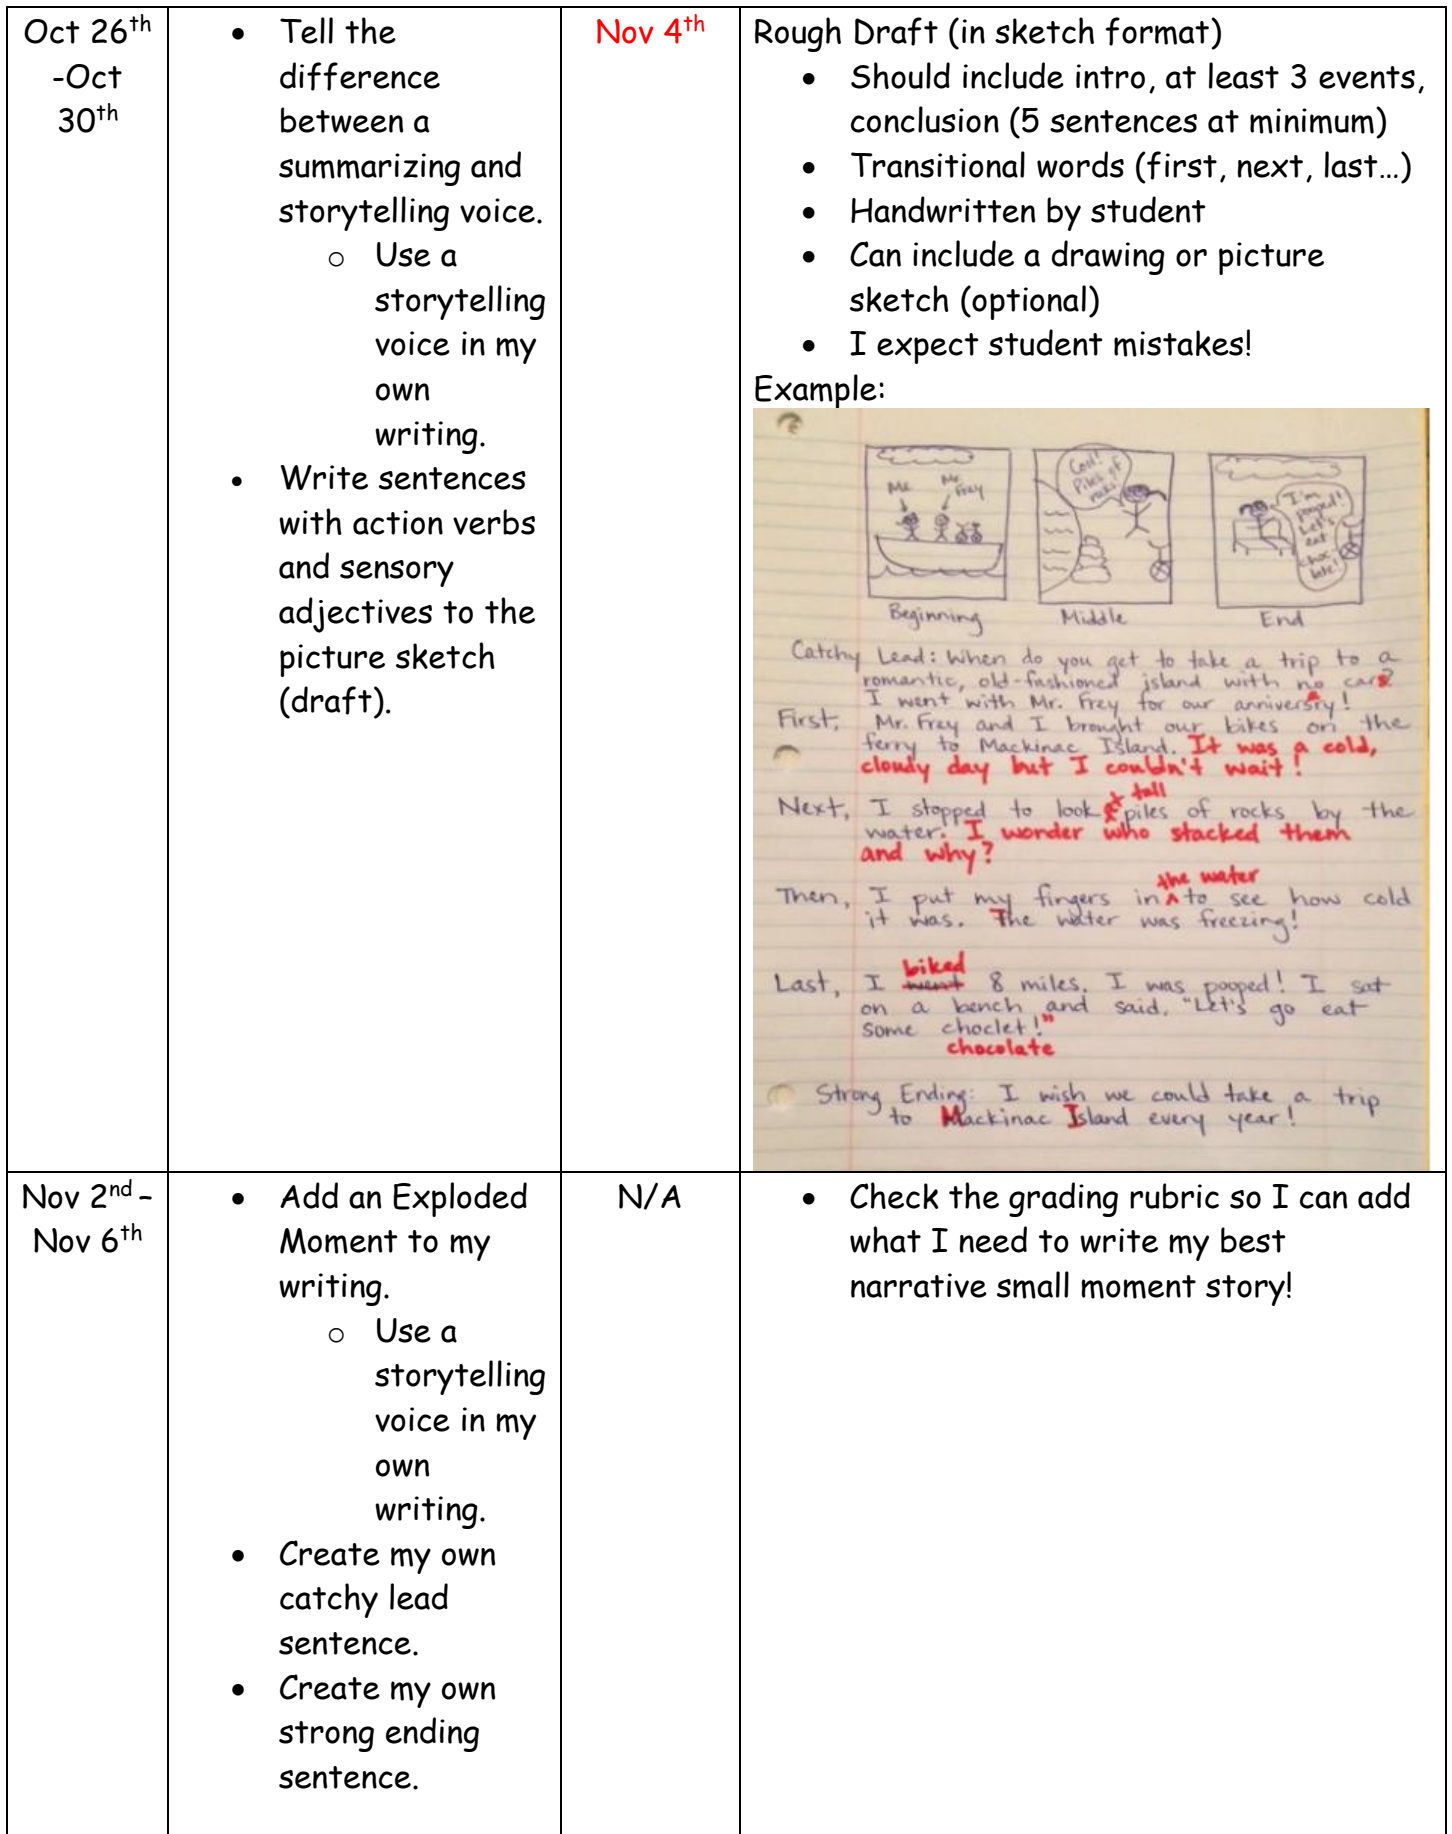 Oct 26th
-Oct
30th
• Tell the
difference
between a
summarizing and
storytelling voice.
o Use a
storytelling
voice in my
own
writing.
• Write sentences
with action verbs
and sensory
adjectives to the
picture sketch
(draft).
Nov 4th
Rough Draft (in sketch format)
• Should include intro, at least 3 events,
conclusion (5 sentences at minimum)
• Transitional words (first, next, last…)
• Handwritten by student
• Can include a drawing or picture
sketch (optional)
• I expect student mistakes!
Example:
Me
Mr.
Frey
Cool!
Piles of
rocks!
I'm
pooped!
Let's
eat
choc
late!
Beginning
Middle
End
Catchy Lead: When do you get to take a trip to a
romantic, old-fashioned island with no cars?
I went with Mr. Frey for our anniversry!
First, Mr. Frey and I brought our bikes on the
ferry to Mackinac Island. It was a cold,
cloudy day but I couldn't wait!
tall
Next, I stopped to look at piles of rocks by the
water. I wonder who stacked them
and why?
the water
Then, I put my fingers in ^ to see how cold
it was. The water was freezing!
biked
Last, I went 8 miles. I was pooped! I sat
on a bench and said, "Let's go eat
some choclet!"
chocolate
Strong Ending: I wish we could take a trip
to Mackinac Island every year!
Nov 2nd –
Nov 6th
• Add an Exploded
Moment to my
writing.
o Use a
storytelling
voice in my
own
writing.
• Create my own
catchy lead
sentence.
• Create my own
strong ending
sentence.
N/A
• Check the grading rubric so I can add
what I need to write my best
narrative small moment story!